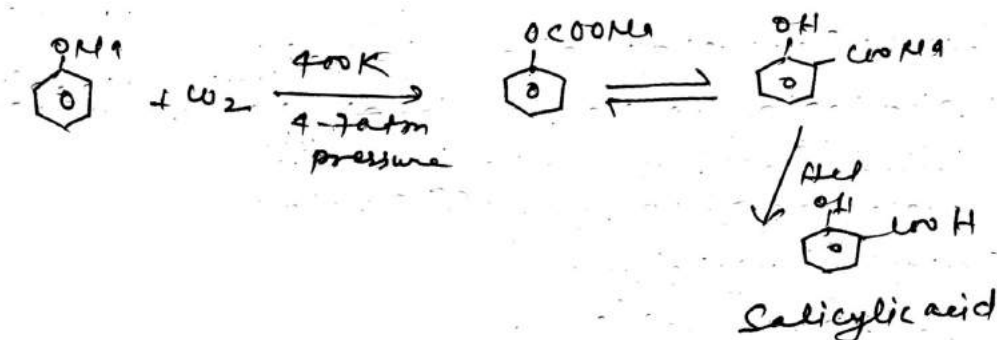 ONa
+ CO2
400K
4-7atm
pressure
OCOONa
OH
COONa
HCl
OH
COOH
Salicylic acid